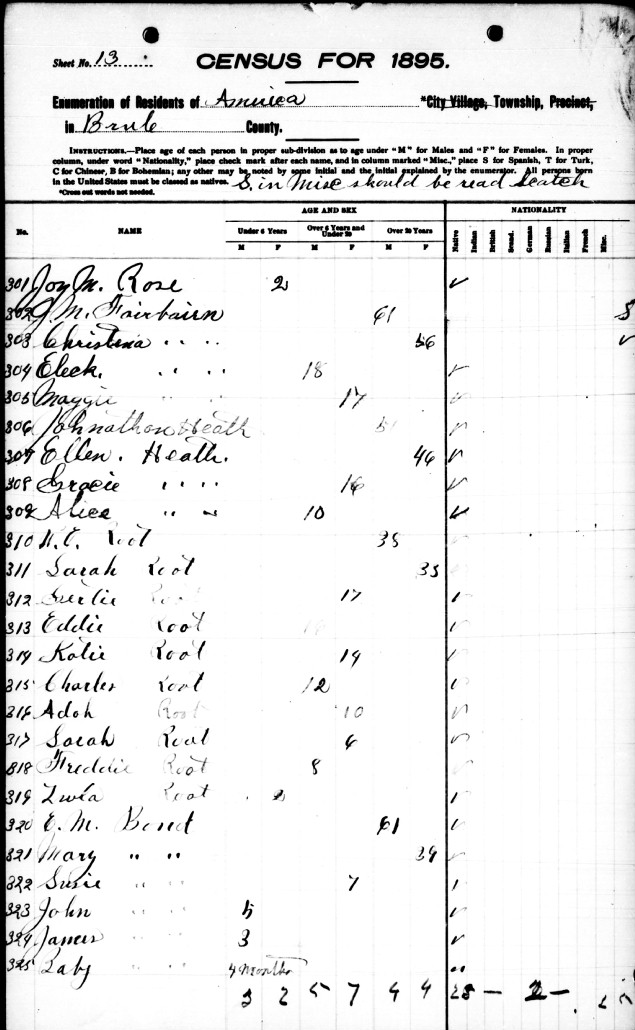 Sheet No. 13
CENSUS FOR 1895.
Enumeration of Residents of America *City Village, Township, Precinct,
in Brule County.
INSTRUCTIONS.—Place age of each person in proper sub-division as to age under "M" for Males and "F" for Females. In proper
column, under word "Nationality," place check mark after each name, and in column marked "Misc.," place S for Spanish, T for Turk,
C for Chinese, B for Bohemian; any other may be noted by some initial and the initial explained by the enumerator. All persons born
in the United States must be classed as natives. S. in Misc should be read Scotch
*Cross out words not needed.
AGE AND SEX NATIONALITY
No. NAME Under 6 Years Over 6 Years and Under 20 Over 20 Years Native Indian British Scand. German Russian Italian French Misc.
M F M F M F
301 Joy M. Rose 2 ✓
302 J. M. Fairbairn 61 S
303 Christena " " 56 ✓
304 Eleck. " " 18 ✓
305 Maggie " " 17 ✓
306 Johnathon Heath ✓
307 Ellen. Heath. 46 ✓
308 Gracie " " 16 ✓
309 Alice " " 10 ✓
310 Root 38
311 Sarah Root 35
312 Gertie Root 17 ✓
313 Eddie Root ✓
314 Katie Root 14 ✓
315 Charles Root 12 ✓
316 Adoh Root 10 ✓
317 Sarah Root 6 ✓
318 Freddie Root 8
319 Root 2 ✓
320 E. M. Bond 61 ✓
321 Mary " " 39 ✓
322 Susie " " 7 ✓
323 John " " 5 ✓
324 James " " 3 ✓
325 Baby " " 4 months "
3 2 5 7 4 4 2 —